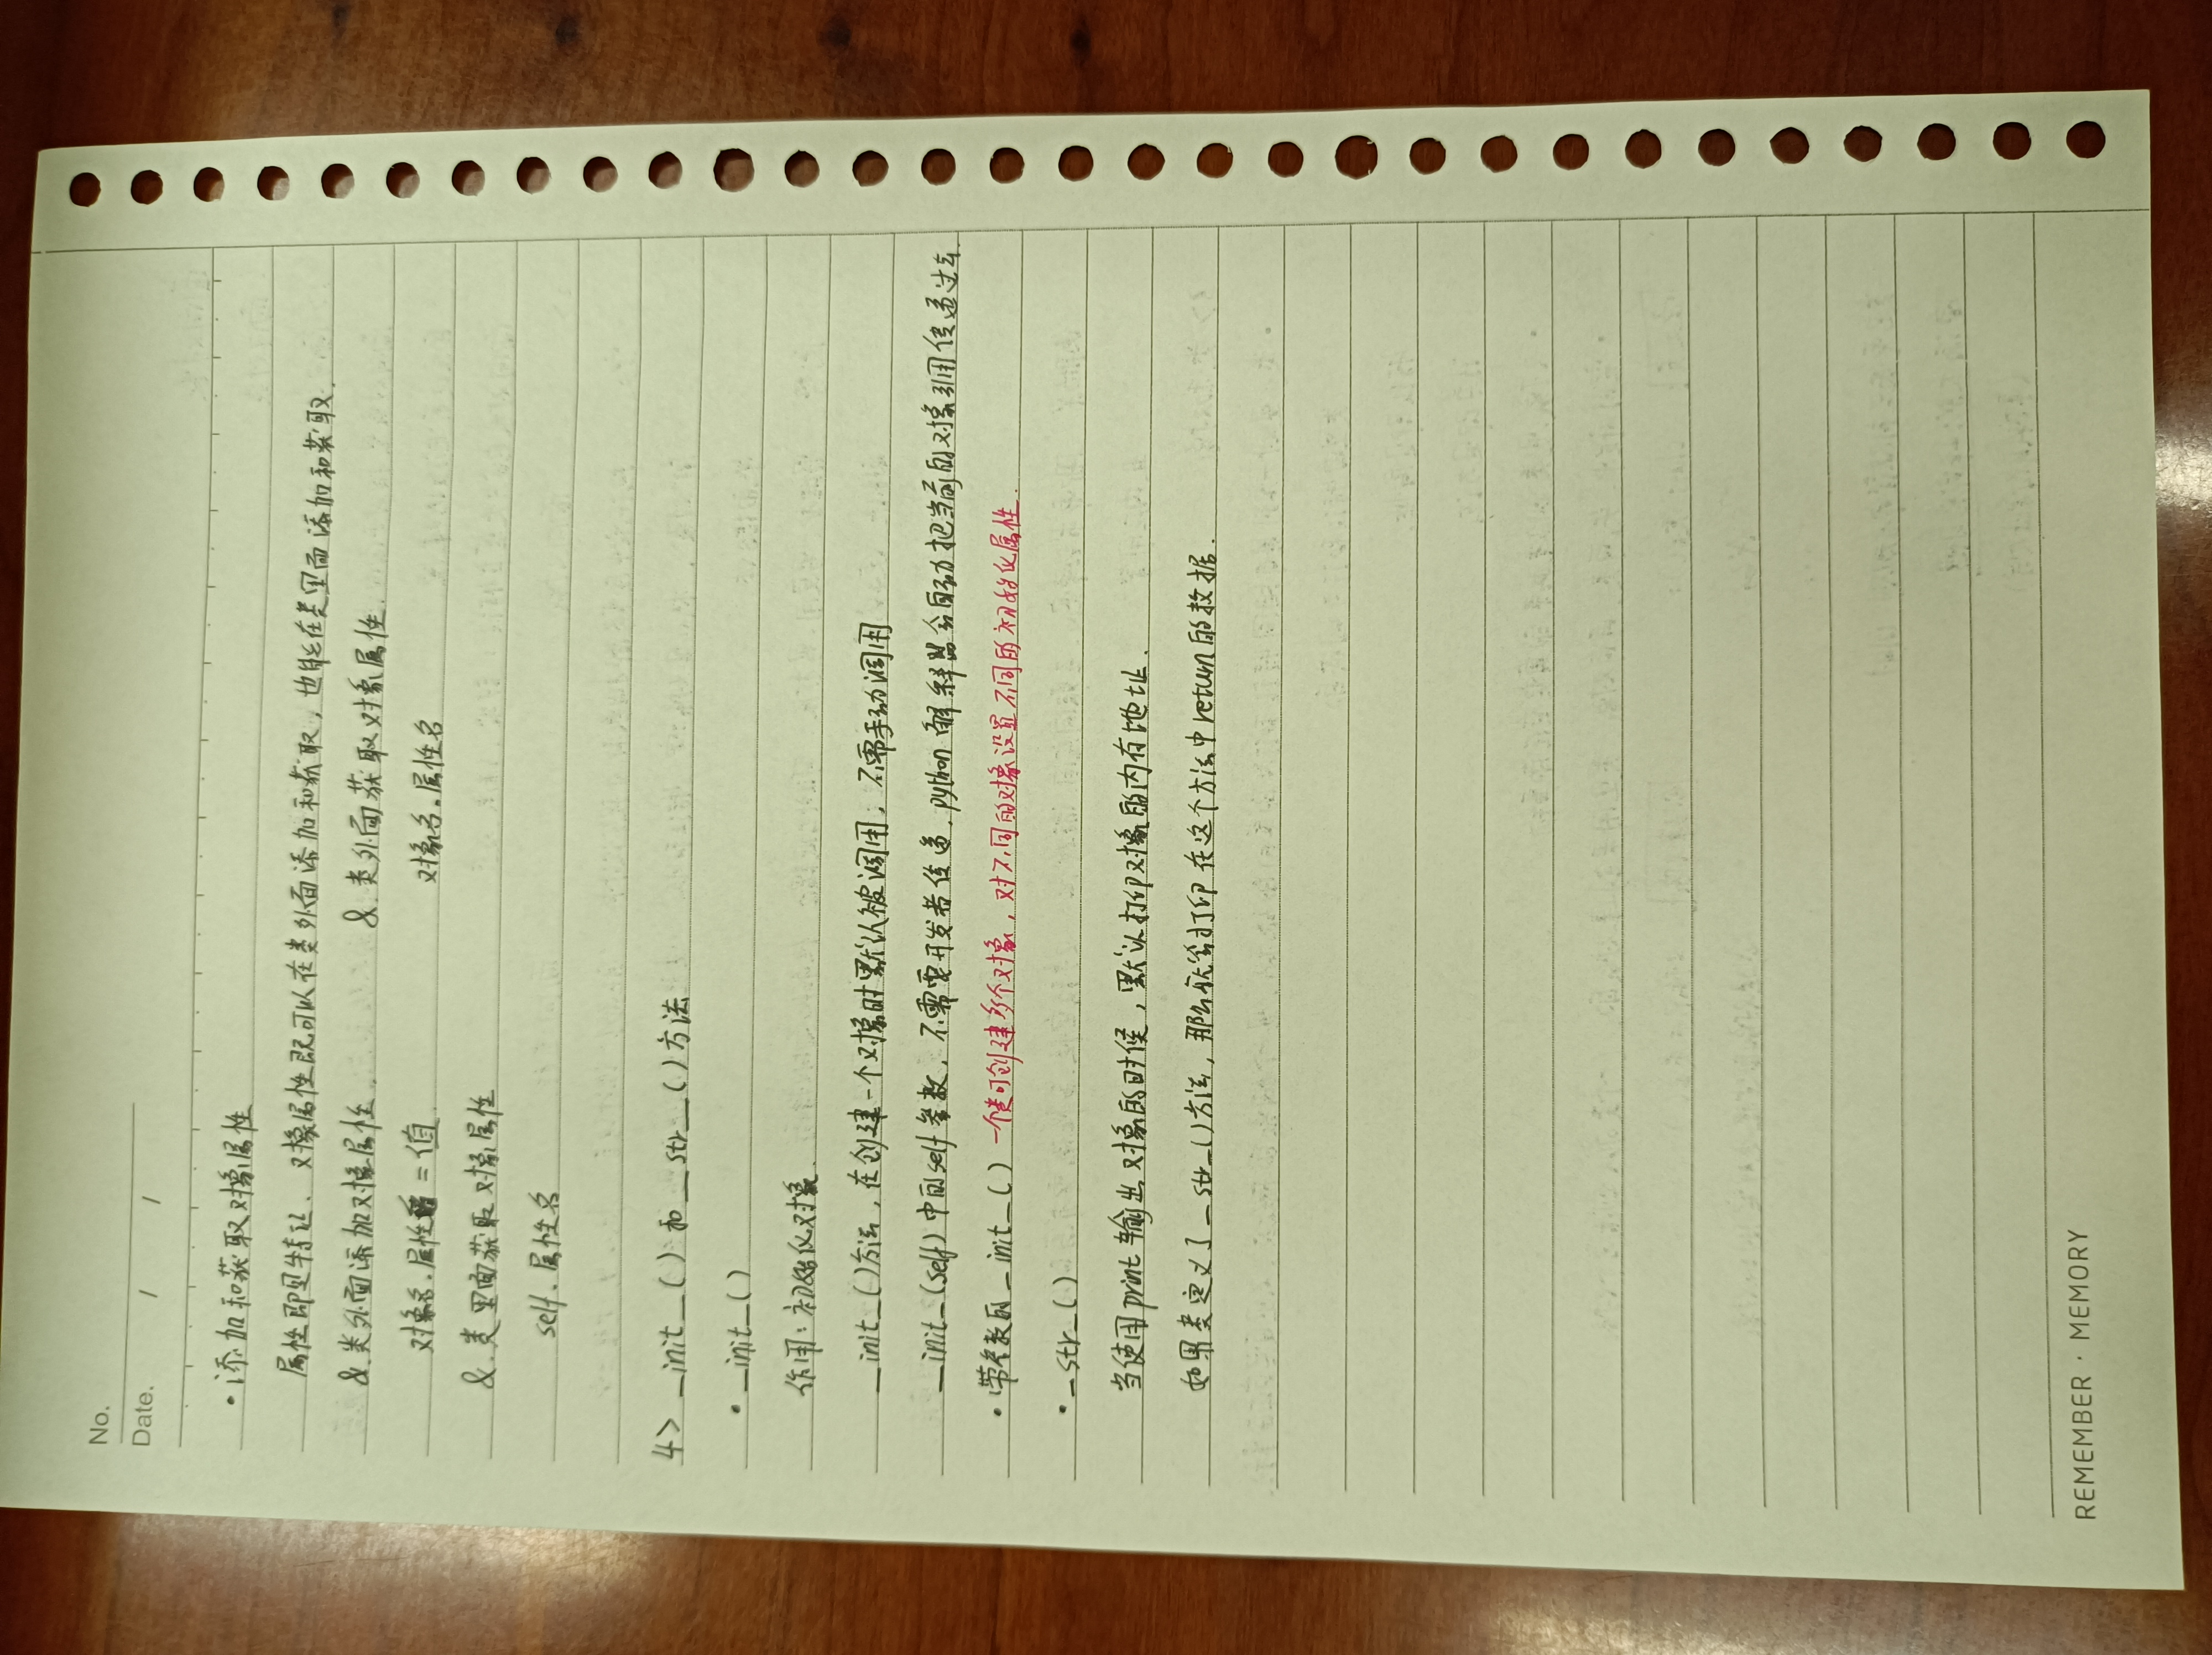 No.
Date. / /
· 添加和获取对象属性
属性即是特征. 对象属性既可以在类外面添加和获取, 也能在类里面添加和获取.
&. 类外面添加对象属性. &. 类外面获取对象属性.
对象名.属性名 = 值. 对象名.属性名
&. 类里面获取对象属性
self.属性名
4> __init__() 和 __str__()方法
· __init__()
作用: 初始化对象.
__init__()方法, 在创建一个对象时默认被调用, 不需手动调用
__init__(self) 中的self参数, 不需要开发者传递, python 解释器会自动把当前的对象引用传递过去.
· 带参数的 __init__() 一个类可创建多个对象, 对不同的对象设置不同的初始化属性.
· __str__()
当使用print输出对象的时候, 默认打印对象的内存地址.
如果类定义了__str__()方法, 那么就会打印在这个方法中return的数据.
REMEMBER · MEMORY